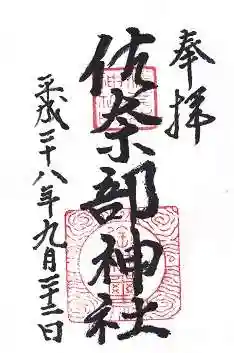 奉拝
佐奈部神社
平成二十八年九月二十二日